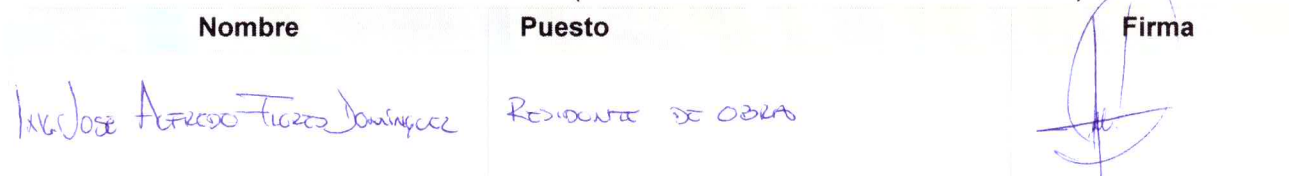 Nombre Puesto Firma
Ing. Jose Alfredo Flores Domínguez Residente de obra